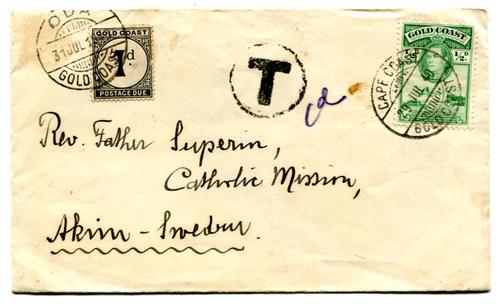 ODA
31 JUL
GOLD COAST
GOLD COAST
1d
POSTAGE DUE
T
d
GOLD COAST
½d
CAPE COAST
Rev. Father Superin,
Catholic Mission,
Akim - Swedru.